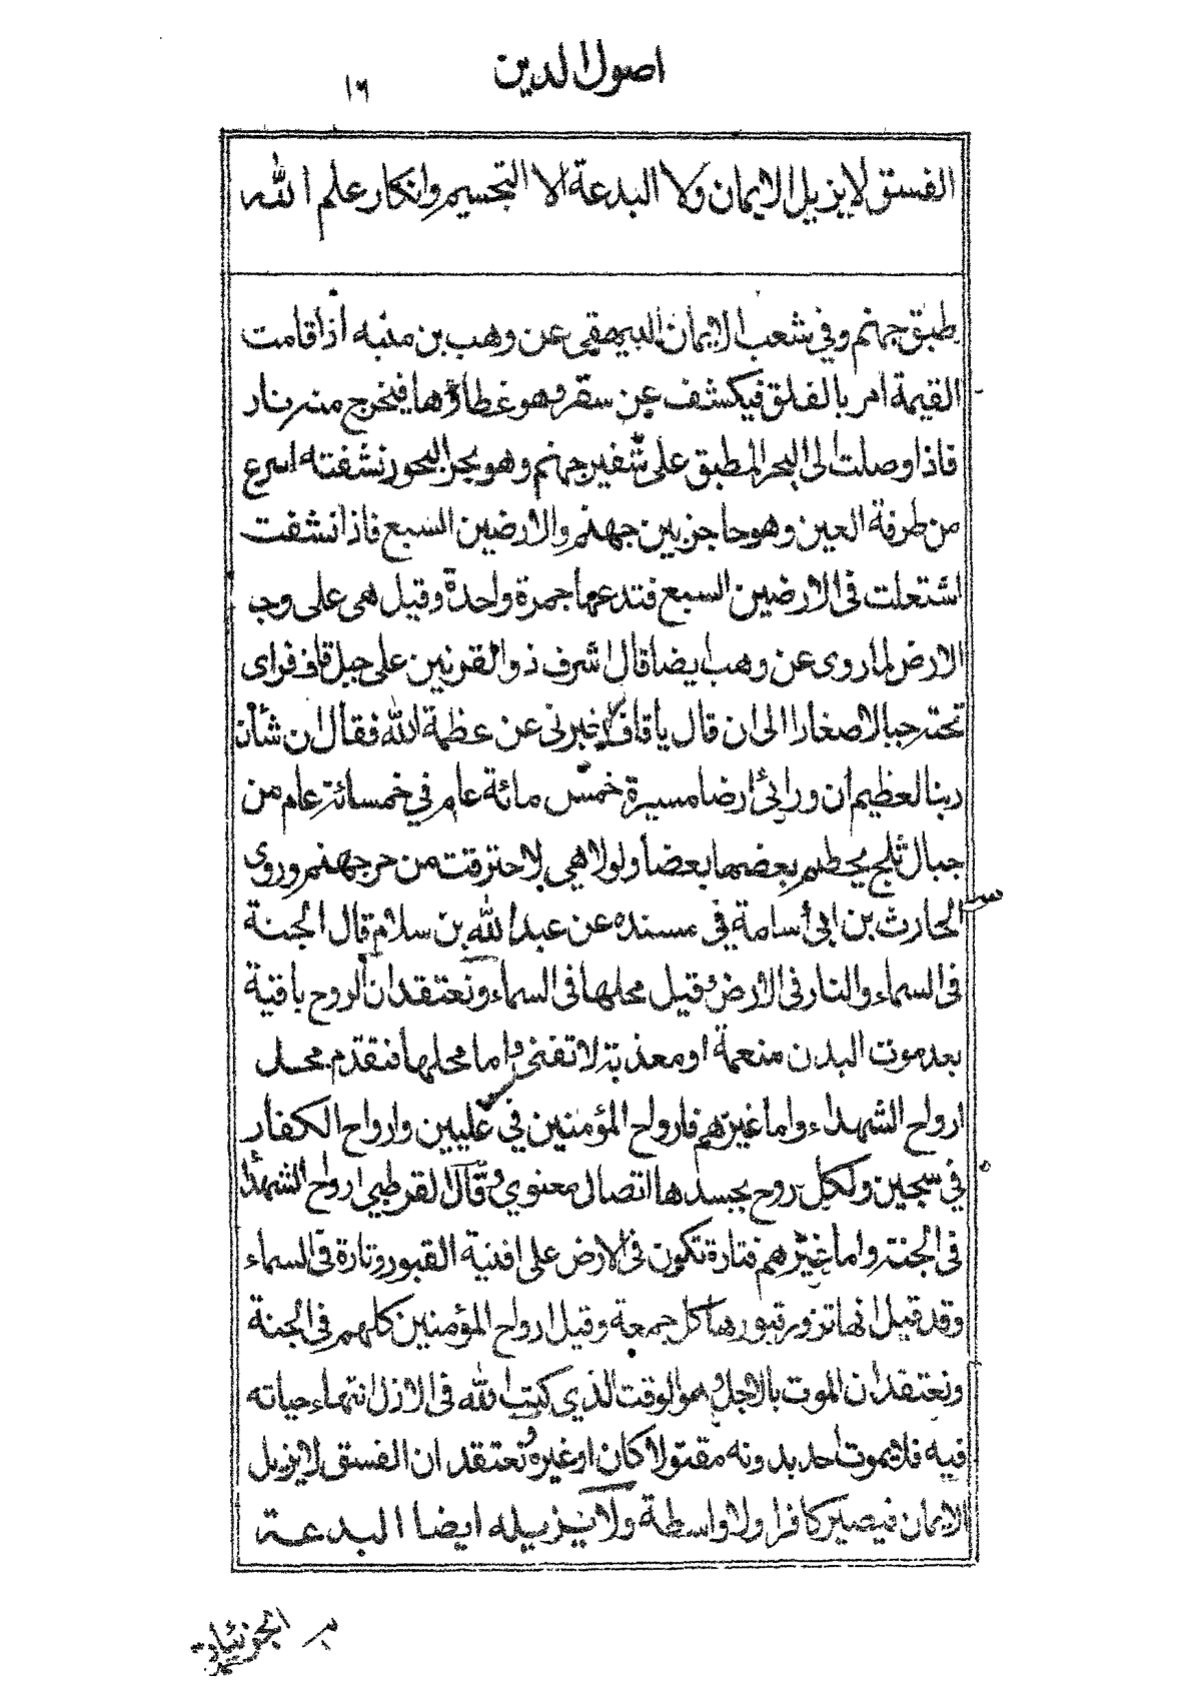 اصول الدين
١٦
الفسق لايزيل الايمان ولا البدعة الا التجسيم وانكار علم الله
طبق جهنم وفي شعب الايمان للبيهقي عن وهب بن منبه اذا قامت
القيمة امر بالفلق فيكشف عن سقر وهو غطاؤها فيخرج منه نار
فاذا وصلت الى البحر المطبق على شفير جهنم وهو بحر البحور نشفته اسرع
من طرفة العين وهو حاجز بين جهنم والارضين السبع فاذا نشفت
اشتعلت في الارضين السبع فتدعها جمرة واحدة وقيل هي على وجه
الارض لما روى عن وهب ايضا قال اشرف ذو القرنين على جبل قاف فراى
تحته جبالا صغارا الى ان قال ياقاف اخبرني عن عظمة الله فقال ان شأن
ربنا لعظيم ان ورائى ارضا مسيرة خمس مائة عام في خمسائة عام من
جبال ثلج يحطم بعضها بعضا ولولا هي لاحترقت من حر جهنم وروى
الحارث بن ابي أسامة في مسنده عن عبد الله بن سلام قال الجنة
في السماء والنار في الارض وقيل محلها في السماء ونعتقد ان الروح باقية
بعد موت البدن منعمة او معذبة لا تفنى واما محلها فنقدم محل
ارواح الشهداء واما غيرهم فارواح المؤمنين في عليين وارواح الكفار
في سجين ولكل روح بجسدها اتصال معنوي وقال القرطبي ارواح الشهدا
في الجنة واما غيرهم فتارة تكون في الارض على افنية القبور وتارة في السماء
وقد قيل انها تزور قبورها كل جمعة وقيل ارواح المؤمنين كلهم في الجنة
ونعتقد ان الموت بالاجل وهو الوقت الذي كتب الله في الازل انتهاء حياته
فيه فلا يموت احد بدونه مقتولا كان او غيره ونعتقد ان الفسق لايزيل
الايمان فيصير كافرا ولا واسطة ولا يزيله ايضا البدعة